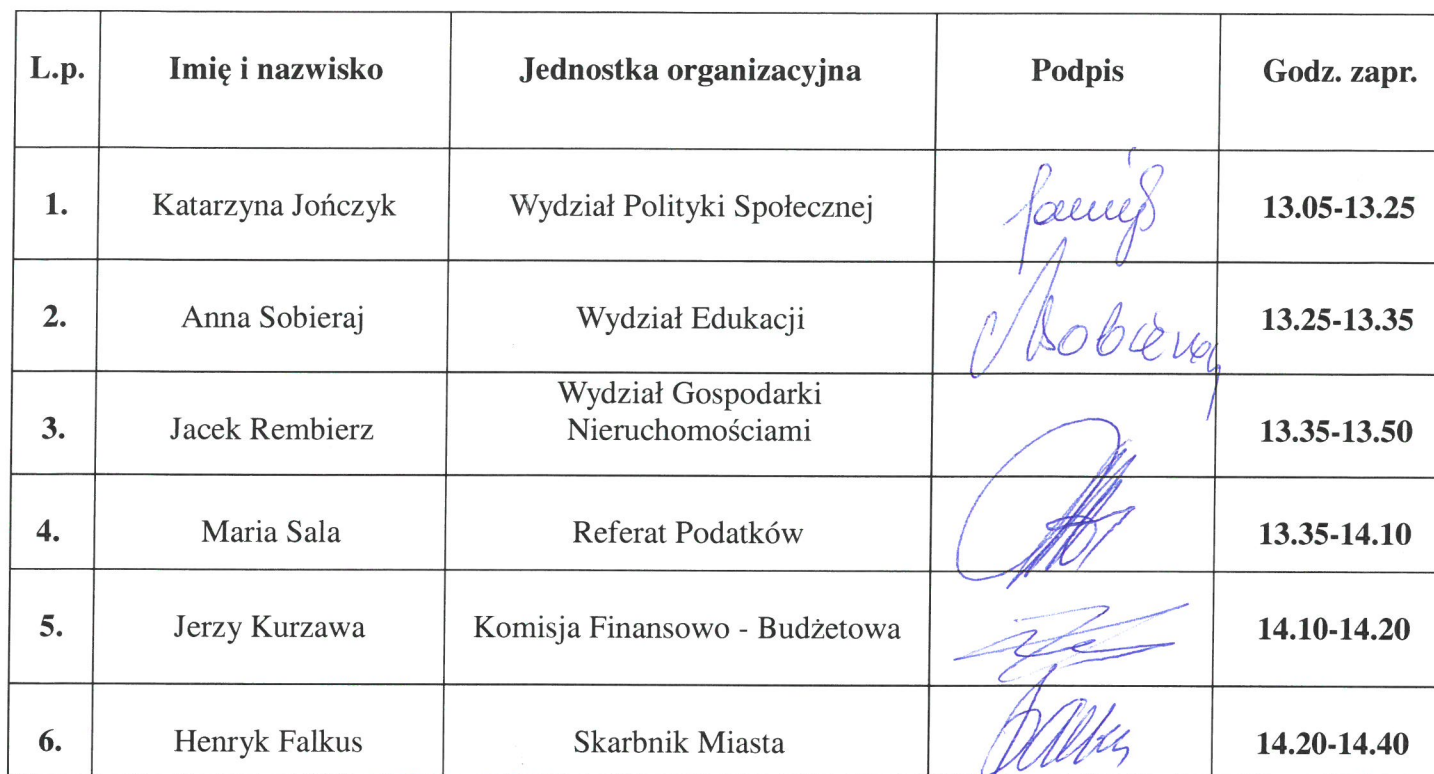 L.p. Imię i nazwisko Jednostka organizacyjna Podpis Godz. zapr.
1. Katarzyna Jończyk Wydział Polityki Społecznej 13.05-13.25
2. Anna Sobieraj Wydział Edukacji 13.25-13.35
Wydział Gospodarki
3. Jacek Rembierz Nieruchomościami 13.35-13.50
4. Maria Sala Referat Podatków 13.35-14.10
5. Jerzy Kurzawa Komisja Finansowo - Budżetowa 14.10-14.20
6. Henryk Falkus Skarbnik Miasta 14.20-14.40